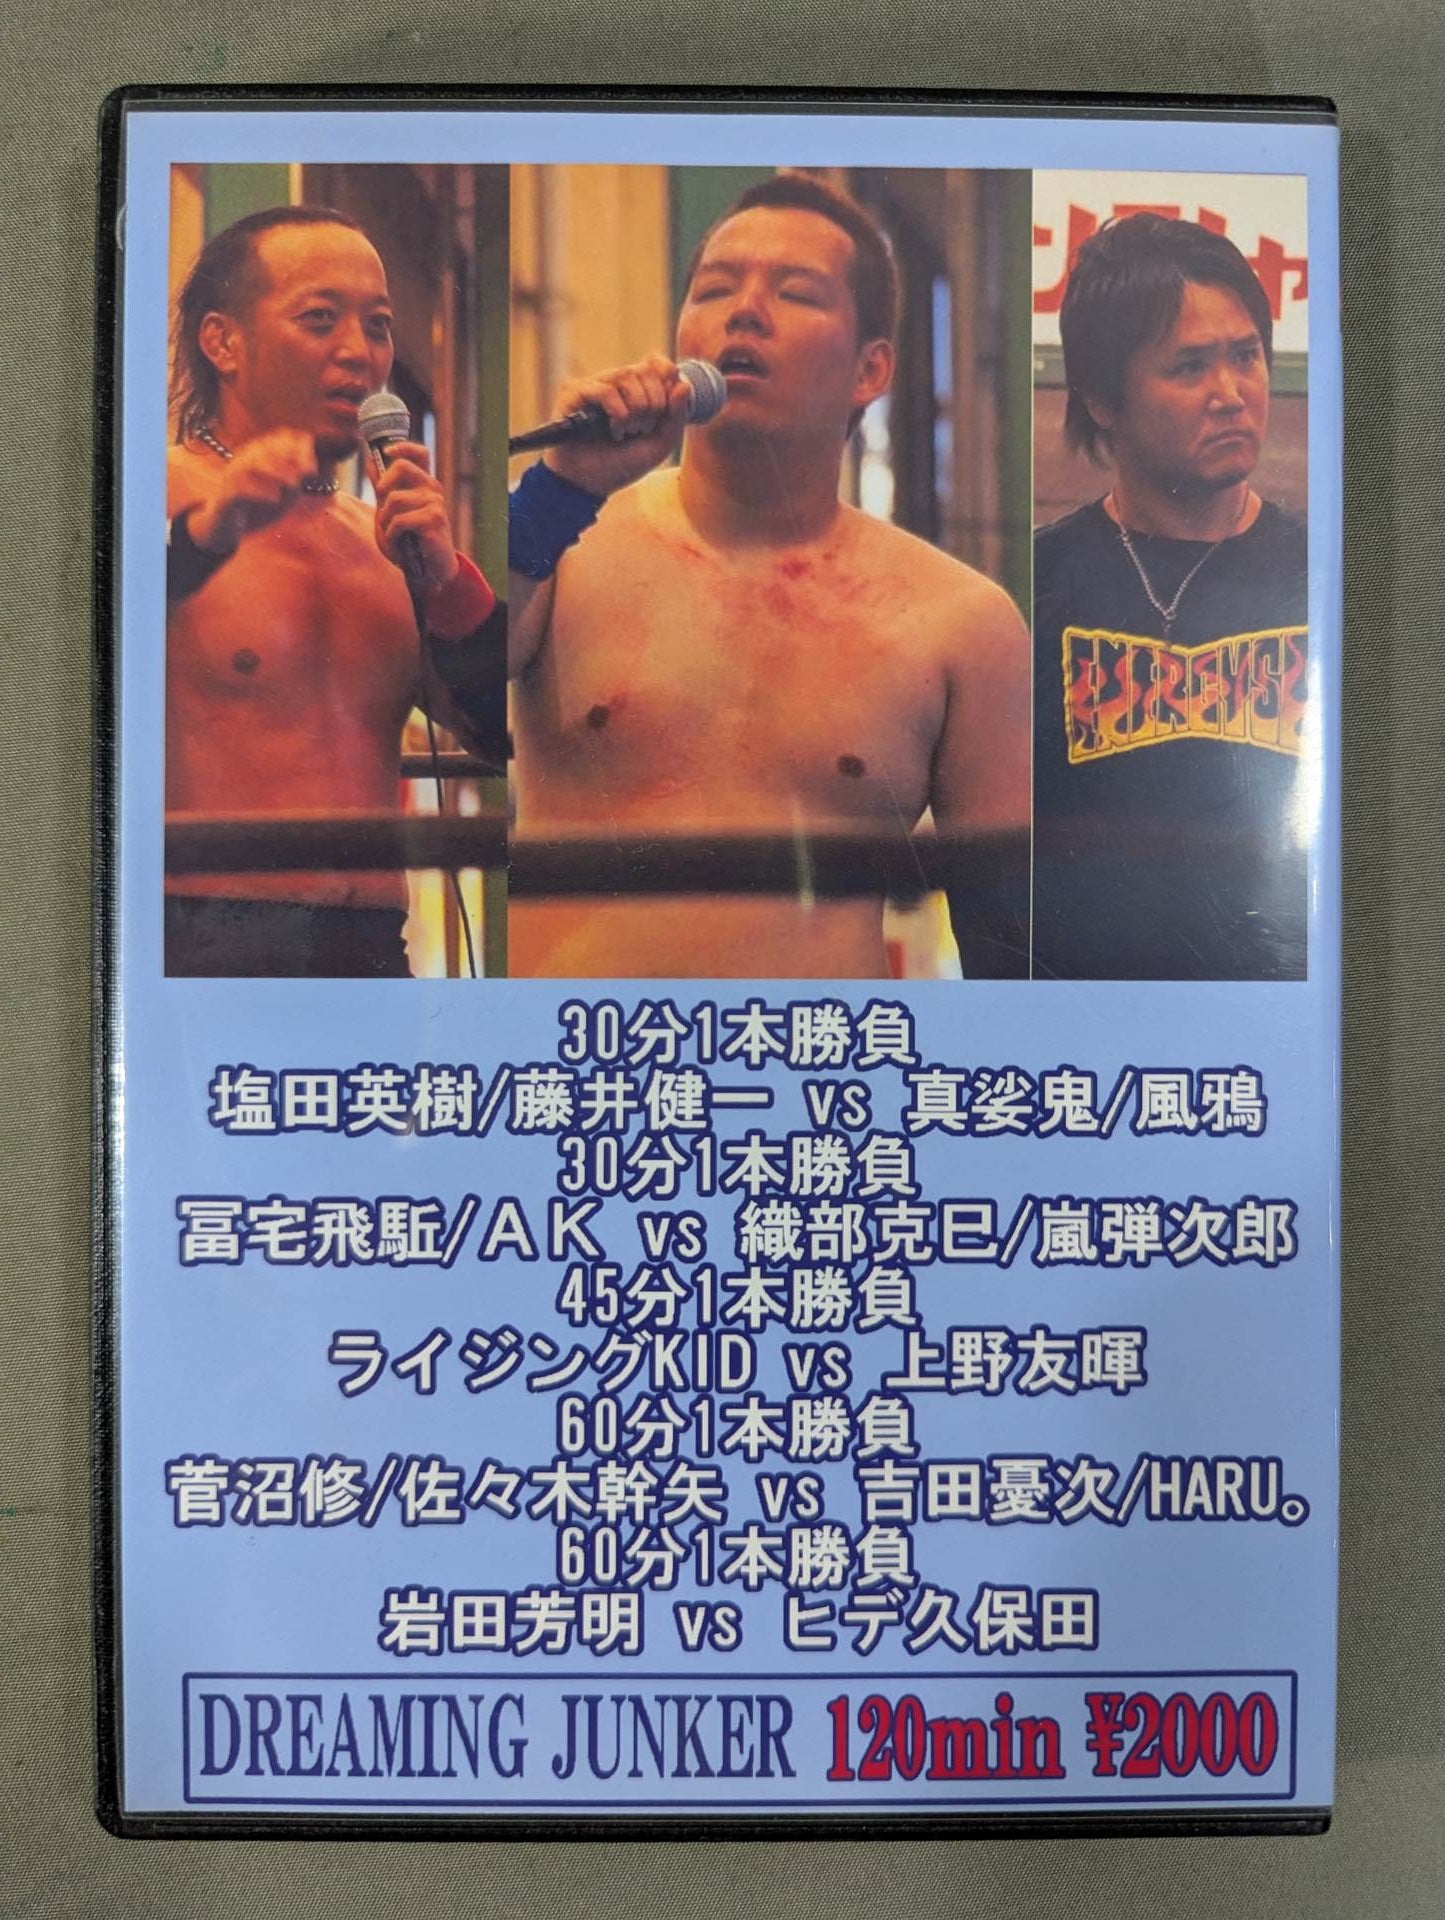 ENERGYS
30分1本勝負
塩田英樹/藤井健一 vs 真娑鬼/風鴉
30分1本勝負
冨宅飛駈/AK vs 織部克巳/嵐弾次郎
45分1本勝負
ライジングKID vs 上野友暉
60分1本勝負
菅沼修/佐々木幹矢 vs 吉田憂次/HARU。
60分1本勝負
岩田芳明 vs ヒデ久保田
DREAMING JUNKER 120min ¥2000